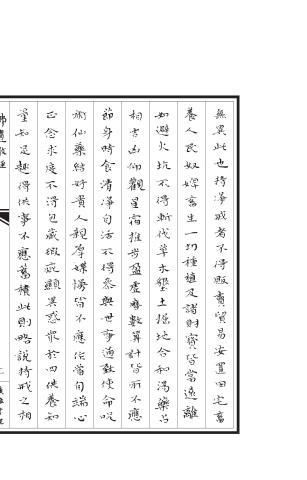 無異此也持淨戒者不得販賣貿易安置田宅畜
養人民奴婢畜生一切種植及諸財寶皆當遠離
如避火坑不得斬伐草木墾土掘地合和湯藥占
相吉凶仰觀星宿推步盈虛曆數算計皆所不應
節身時食清淨自活不得參與世事通致使命呪
術仙藥結好貴人親厚媟慢皆不應作當自端心
正念求度不得包藏瑕疵顯異惑眾於四供養知
量知足趣得供事不應蓄積此則略說持戒之相